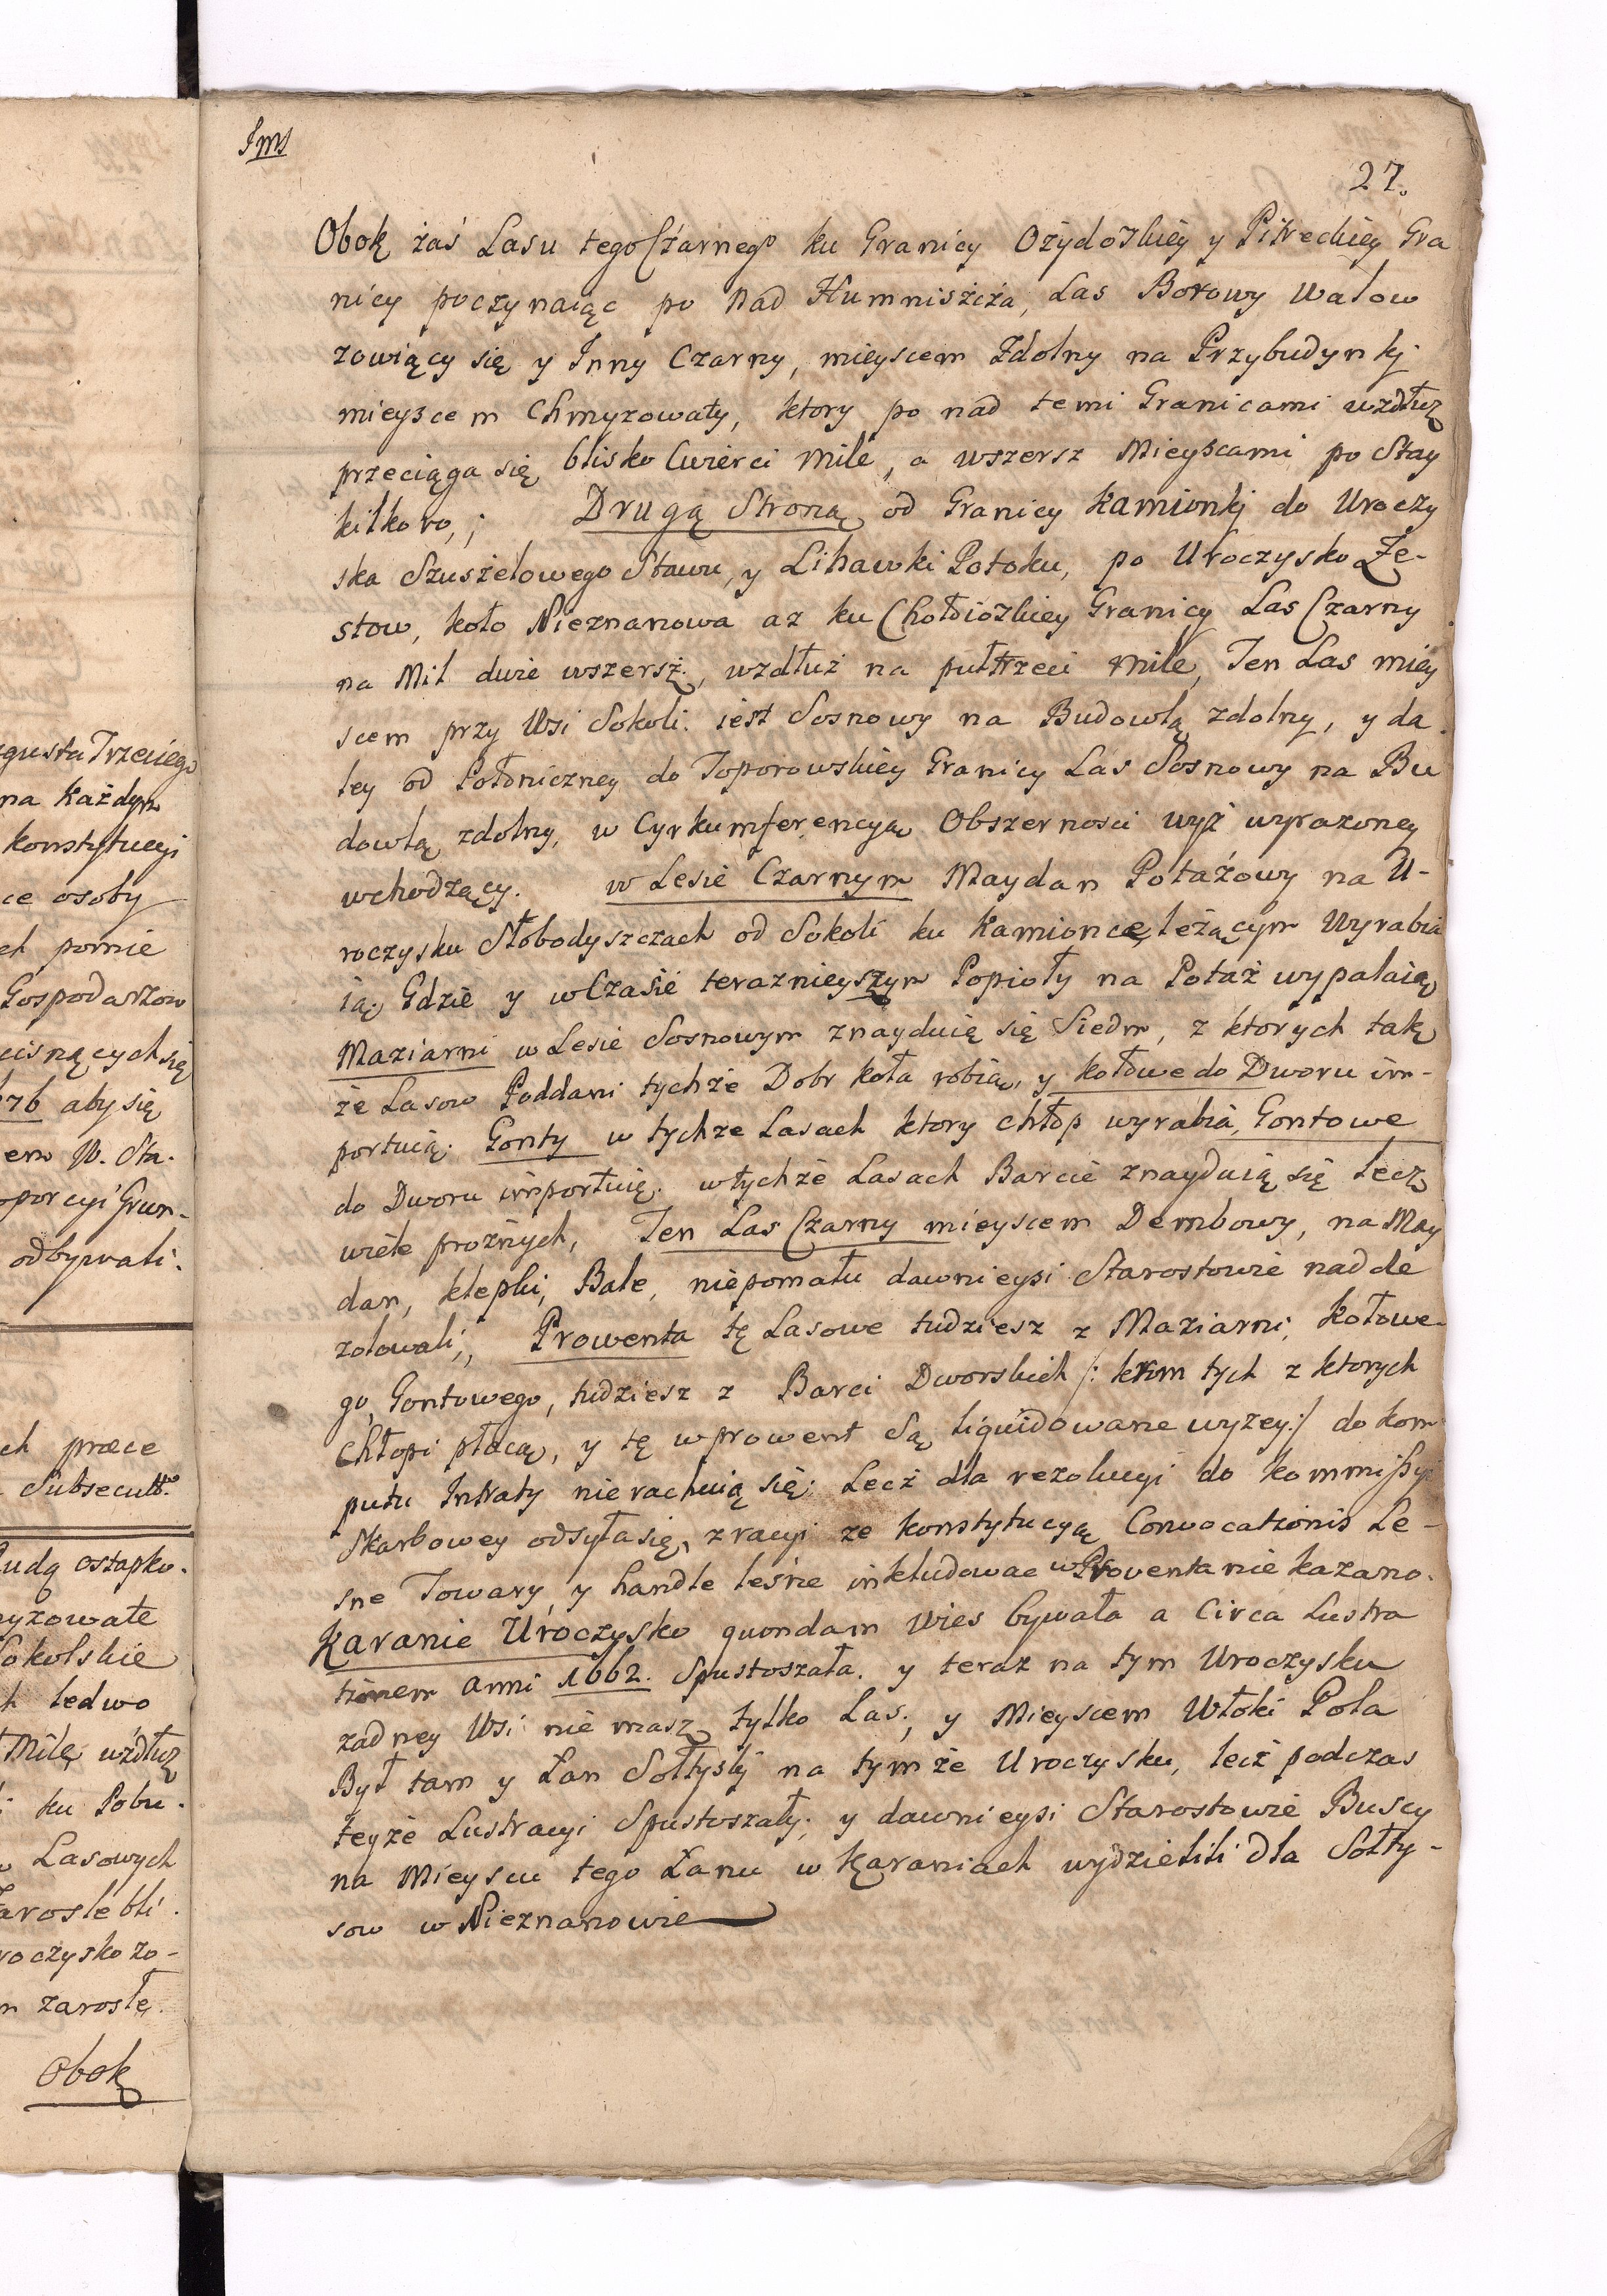 gusta Trzeciego
na każdym
konstytucyi
ce osoby
ch pomie
Gospodarzow
cisnących się
76 aby się
em W. Sta.
porcyi Grun-
odbywali.
ch præce
Subsecutt.
Rudą ostapko.
yzowate
Sokolskie
h ledwo
Milę wzdłuz
ku Pobu.
Lasowych
Zarosle bli.
roczysko zo-
n zarosłe.
Obok
Ims
27.
Obok zaś Lasu tego Czarnego ku Granicy Ożydoskiey y Pitreckiey Gra
nicy poczynaiąc po nad Humniszcza, Las Borowy Watow
zowiący się y Inny Czarny, mieyscem zdolny na Przybudynki
mieyscem Chmyzowaty, ktory po nad temi Granicami wzdłuz
przeciąga się blisko Cwierci Mile, a wszersz Mieyscami po Stay
kilkoro,; Drugą Stroną od Granicy Kamionki do Uroczy
ska Szuszelowego Stawu, y Lihawki Potoku, po Uroczysko Zę-
stow, koło Nieznanowa az ku Chołdioskiey Granicy Las Czarny
na Mil dwie wszersz, wzdłuż na pułtrzeci mile, Ten Las miey
scem przy Wsi Sokoli iest Sosnowy na Budowlą zdolny, y da
ley od Połoniczney do Toporowskiey Granicy Las Sosnowy na Bu
dowlą zdolny, w Cyrkumferencyą Obszernosci wyż wyrazoney
wchodzący. w Lesie Czarnym Maydan Potażowy na U-
roczysku Słobodyszczach od Sokoli ku Kamionce leżącym Wyrabia
ią, Gdzie y w Czasie teraznieyszym Popioły na Potaż wypalaią
Maziarni w Lesie Sosnowym znayduię się Siedm, z ktorych tak
że Lasow Poddani tychże Dobr koła robią, y kołowe do Dworu im-
portuią. Gonty w tychze Lasach ktory chłop wyrabia, Gontowe
do Dworu importuię. w tychże Lasach Barcie znayduią się lecz
wiele prożnych, Ten Las Czarny mieyscem Dembowy, na May
dan, klepki, Bale, niepomału dawnieysi Starostowie nadde
zolowali,, Prowenta tę Lasowe tudziesz z Maziarni, kołowe
go, Gontowego, tudziesz z Barci Dworskich /: krom tych z ktorych
Chłopi płacą, y tę w prowent Są liquidowane wyzey:/ do kom
putu Intraty nie rachuią się; Lecż dla rezolucyi do kommissyi
Skarbowey odsyła się, z racyi ze konstytucyą Convocationis Le-
sne Towary, y handle leśne inkludowac w Proventa nie kazano.
Karanie Uroczysko quondam Wies bywała a Circa Lustra
tionem anni 1662. Spustoszała. y teraz na tym Uroczysku
zadney Wsi nie masz tylko Las, y Mieyscem Włoki Pola
Był tam y Łan Sołtyski na tymże Uroczysku, lecż podczas
teyże Lustracyi Spustoszały; y dawnieysi Starostowie Buscy
na Mieyscu tego Łanu w Karaniach wydzielili dla Sołty-
sow w Nieznanowie